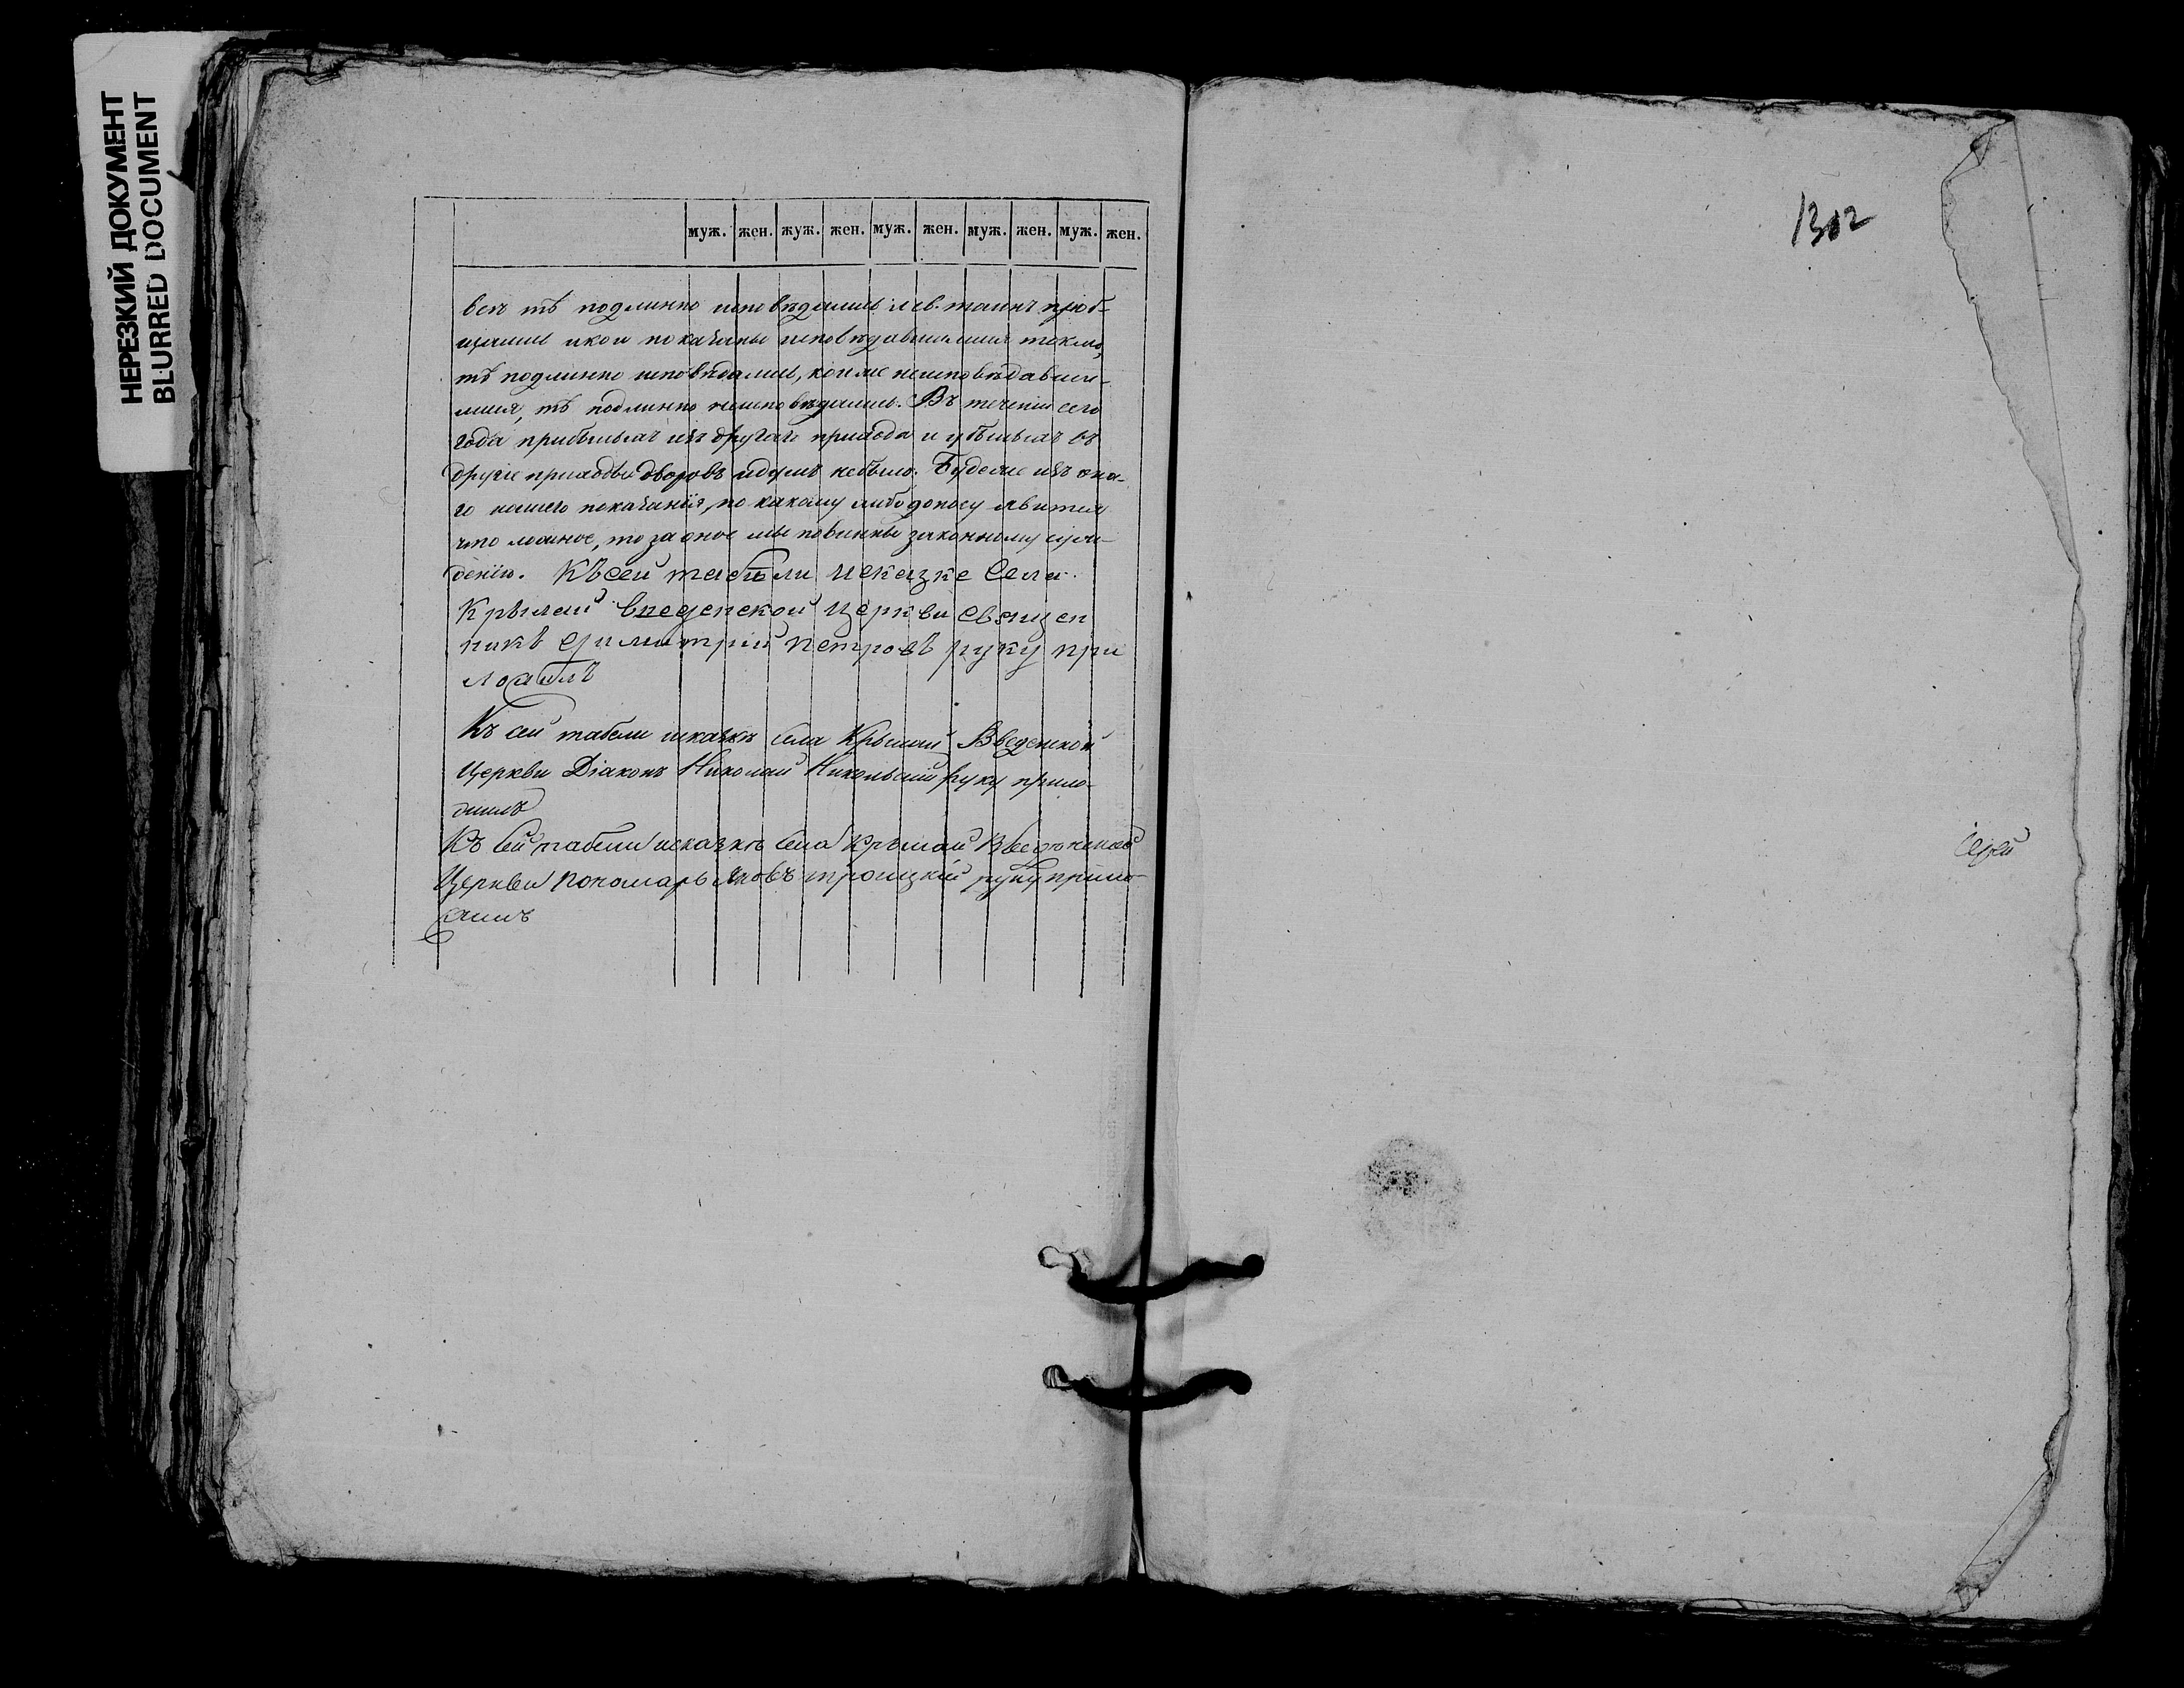 НЕРЕЗКИЙ ДОКУМЕНТ
BLURRED DOCUMENT
муж. жен. жуж. жен. муж. жен. муж. жен. муж. жен.
всѣ тѣ подлинно исповѣдались и св. таинъ прюб-
щались и кои показаны исповѣдавшимися токмо,
тѣ подлинно исповѣдались, кои же неисповѣдавши-
мися, тѣ подлинно неисповѣдались. Въ теченіи сего
года прибылыхъ изъ другаго прихода и убылыхъ въ
другіе приходы дворовъ и душъ небыло. Буде же изъ она-
го нашего показанія, по какому либо доносу явится
что ложное, то за оное мы повинны законному суж-
денію. Къ сей табѣли исказке Села
Крылай введенской церкви священ
никъ Димитрій петровъ руку при
ложилъ
Къ сей табели исказкѣ села Крылай Введенской
Церкви Діаконъ Николай Никольскій руку прило-
жилъ
Къ сей табели исказкѣ села Крылай Введенской
Церкви пономарь Яковъ троицкій руку прило-
жилъ
1302